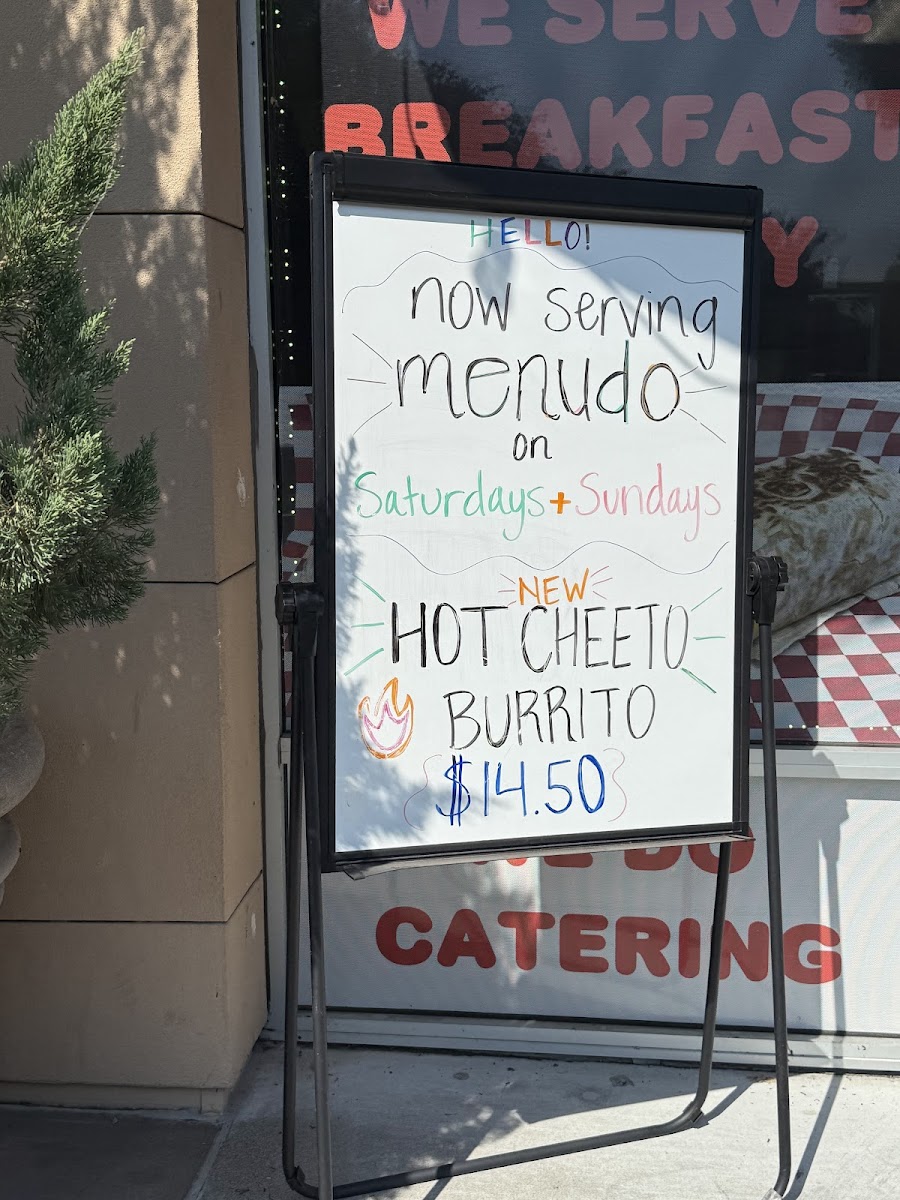 WE SERVE
BREAKFAST
Y
HELLO!
now serving
menudo
on
Saturdays + Sundays
NEW
HOT CHEETO
BURRITO
$14.50
WE DO
CATERING